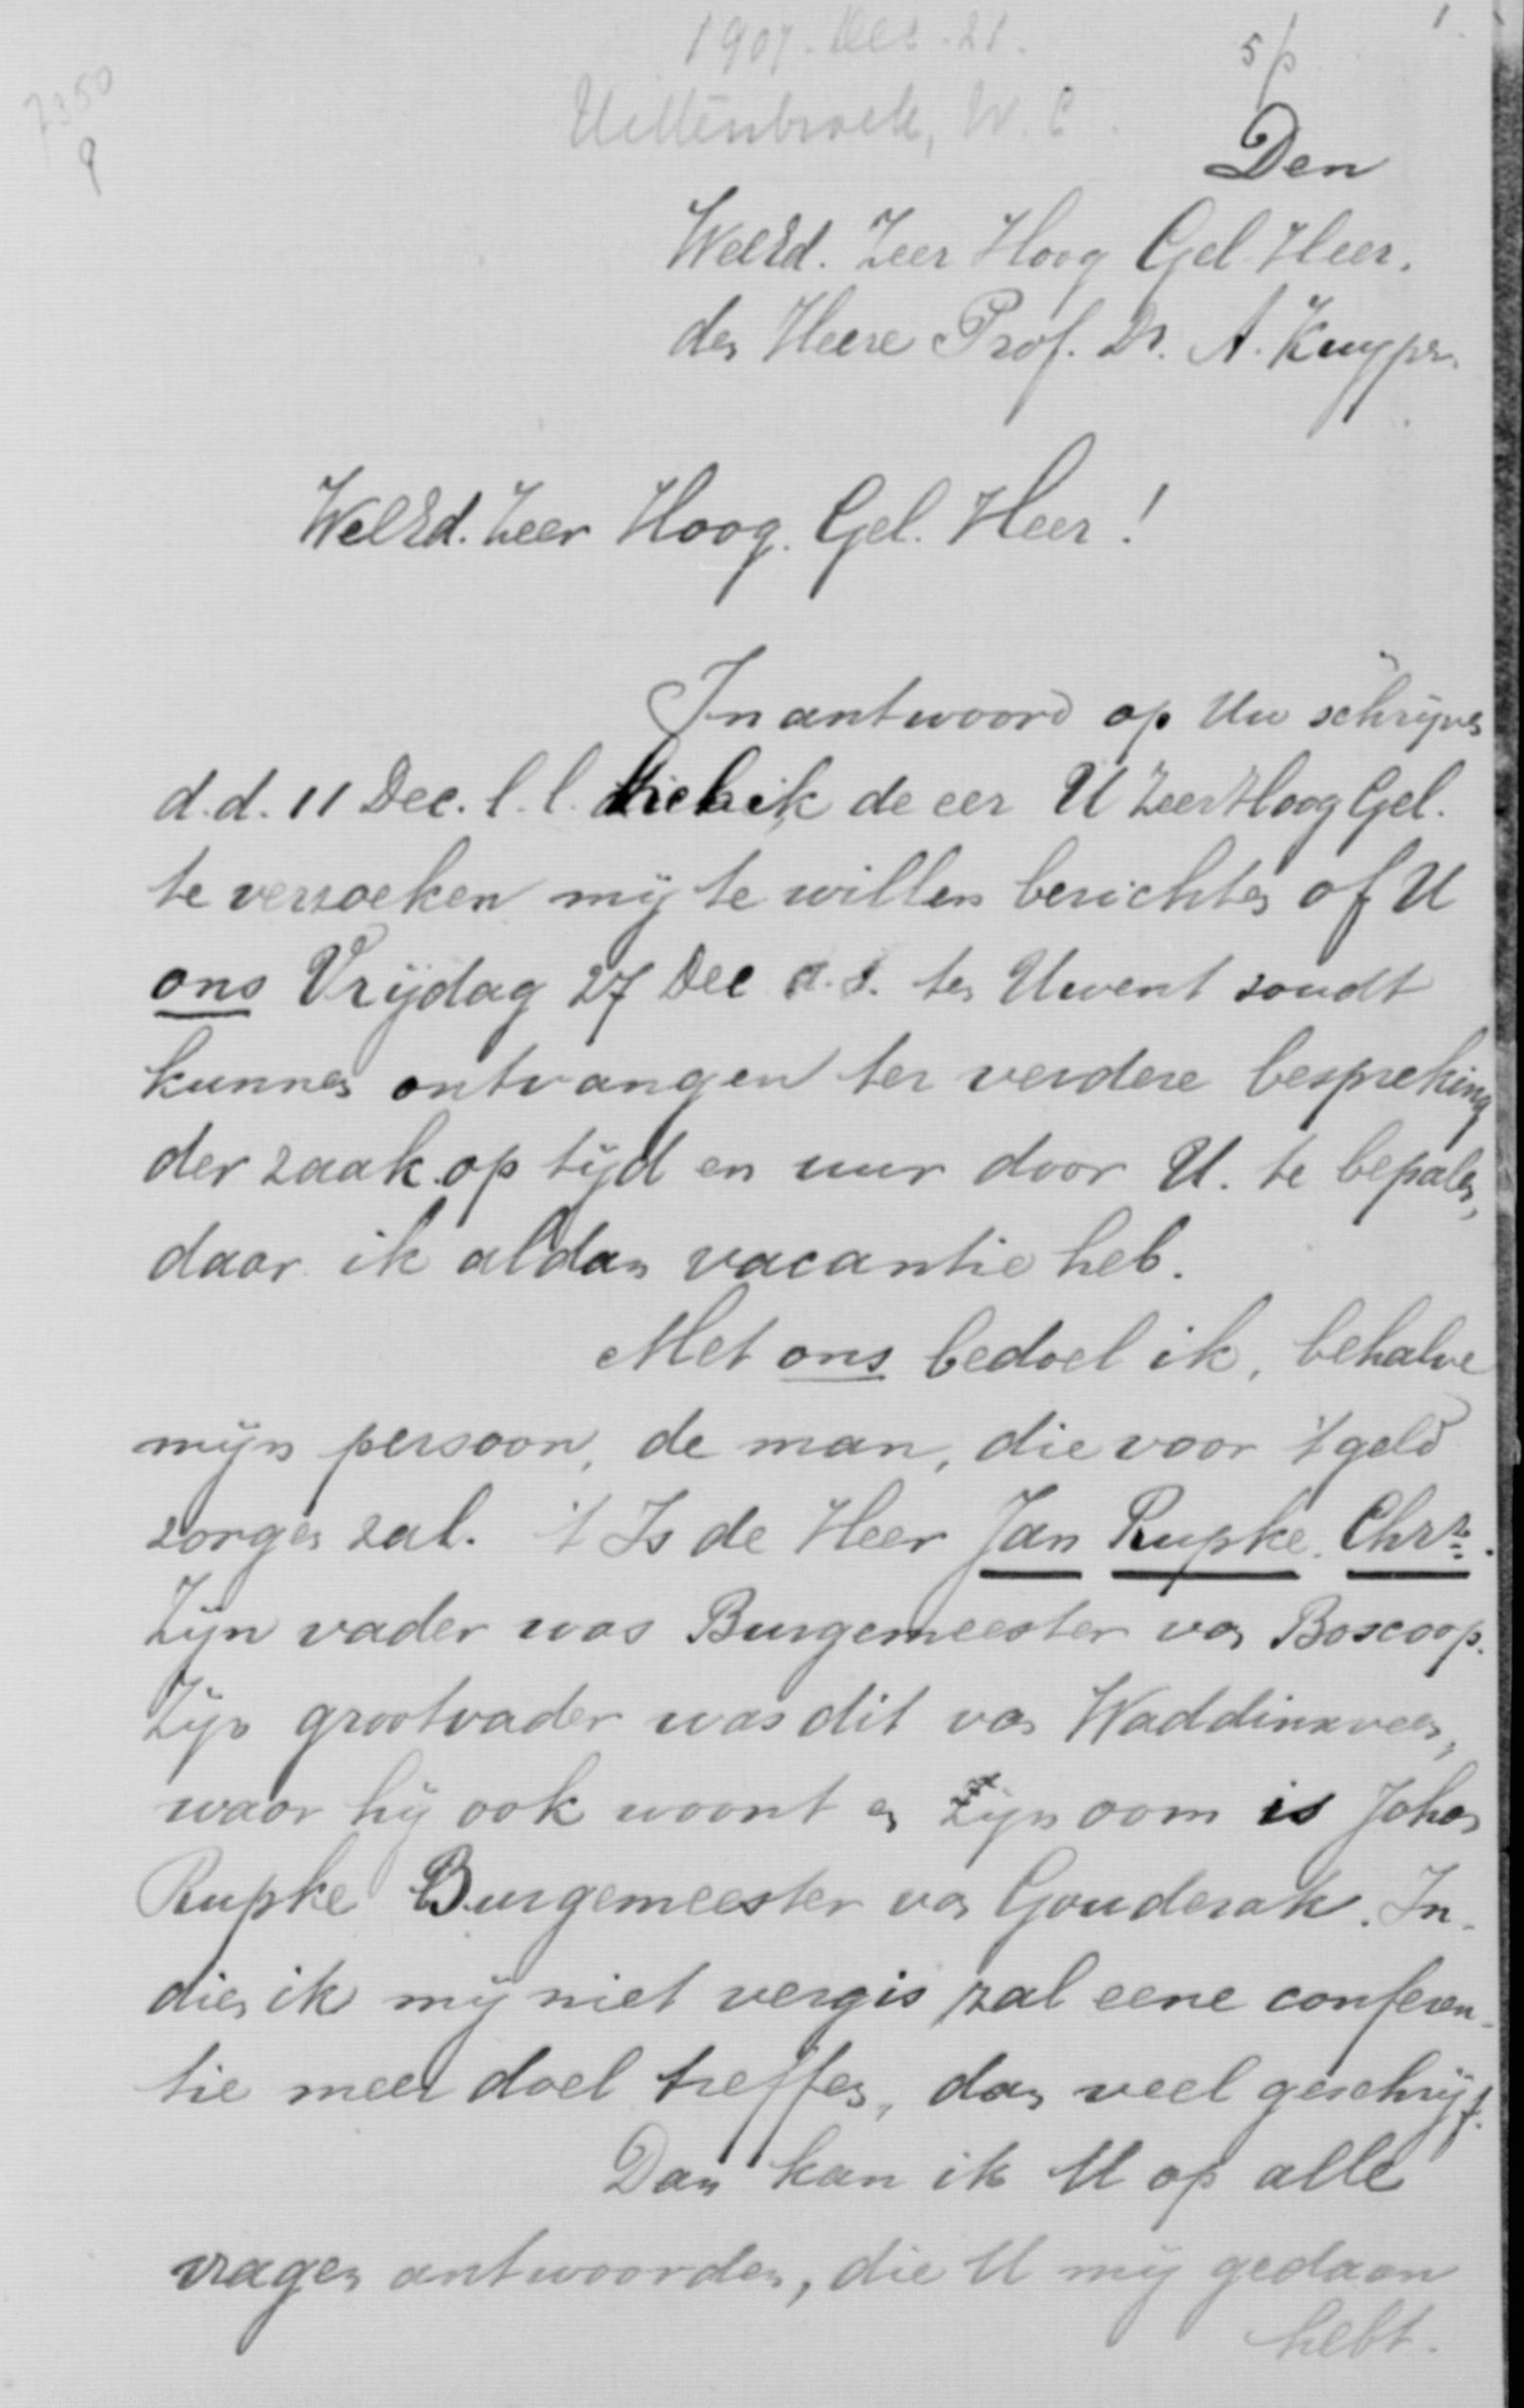 1907. Dec. 21.
5/p
1.
7350
9
Uittenbroek, W. C.
Den
WelEd. Zeer Hoog Gel. Heer.
den Heere Prof. Dr. A. Kuyper.
WelEd. Zeer Hoog. Gel. Heer!
In antwoord op Uw schrijven
d.d. 11 Dec. l.l. heb ik de eer U Zeer Hoog Gel.
te verzoeken mij te willen berichten of U
ons Vrijdag 27 Dec a.s. ten Uwent zoudt
kunnen ontvangen ter verdere bespreking
der zaak op tijd en uur door U. te bepalen,
daar ik aldan vacantie heb.
Met ons bedoel ik, behalve
mijn persoon, de man, die voor 't geld
zorgen zal. 't Is de Heer Jan Rupke. Chrz.
Zijn vader was Burgemeester van Boscoop.
Zijn grootvader was dit van Waddinxveen,
waar hij ook woont en zijn oom is Johan
Rupke Burgemeester van Gouderak. In-
dien ik mij niet vergis zal eene conferen-
tie meer doel treffen, dan veel geschrijf.
Dan kan ik U op alle
vragen antwoorden, die U mij gedaan
hebt.